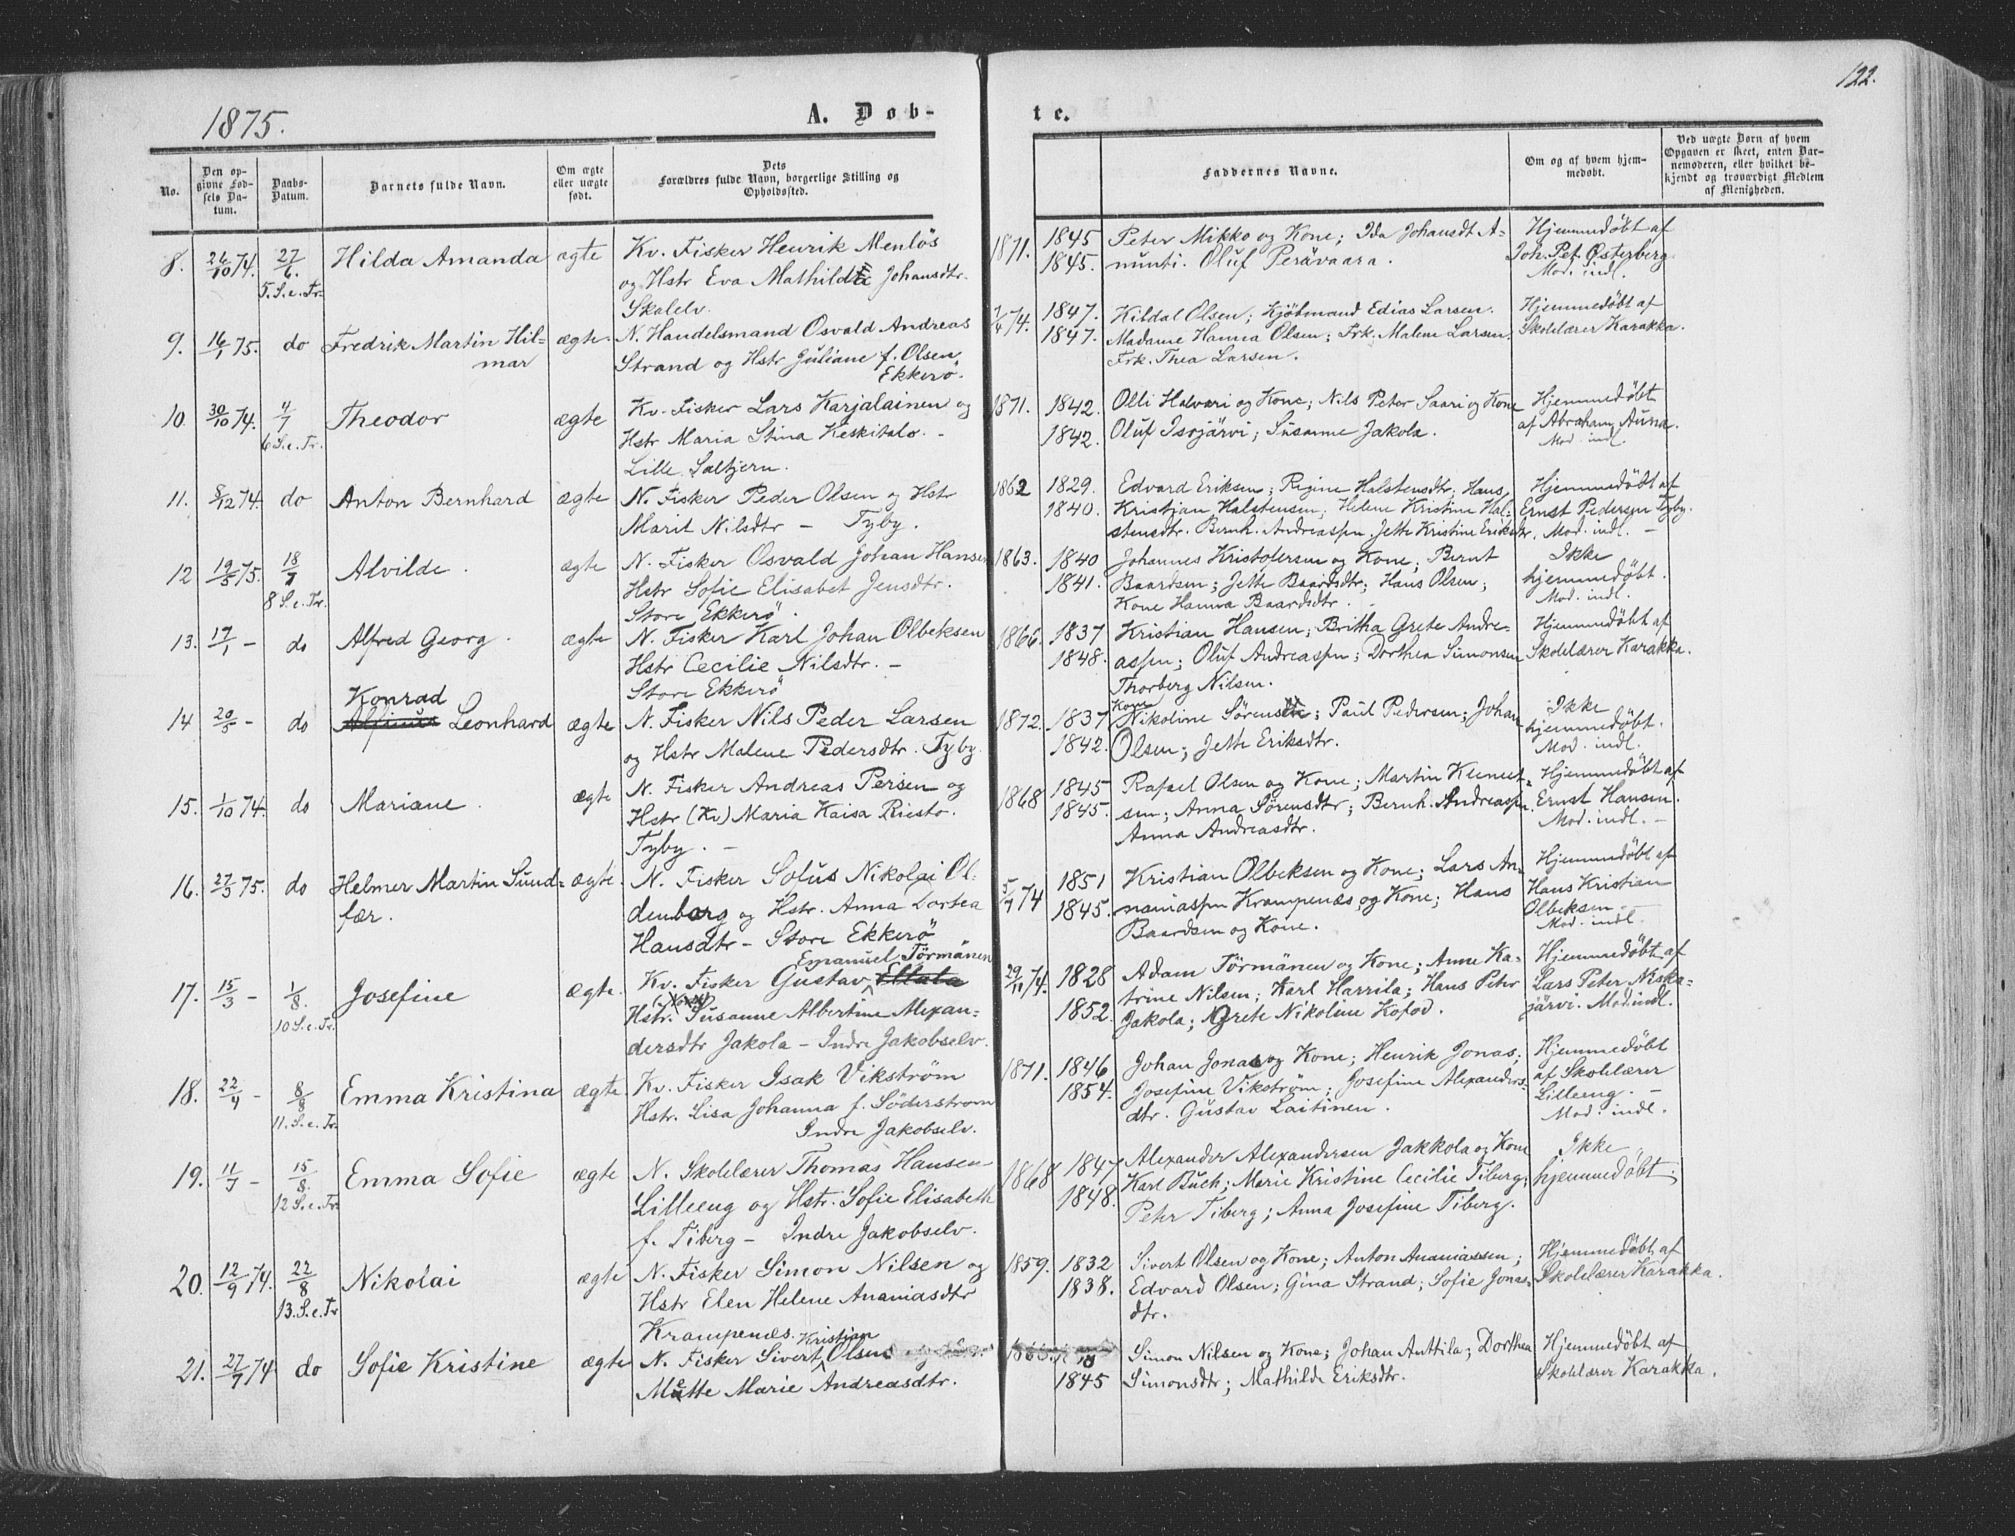 122.
1875.
A. Døb-
te.
No.
Den op-
givne Fød-
sels Da-
tum.
Daabs-
Datum.
Barnets fulde Navn.
Om ægte
eller uægte
født.
Dets
Forældres fulde Navn, borgerlige Stilling og
Opholdssted.
Faddernes Navne.
Om og af hvem hjem-
medøbt.
Ved uægte Børn af hvem
Opgaven er skeet, enten Bar-
nemoderen, eller hvilket be-
kjendt og troværdigt Medlem
af Menigheden.
8. 26/10 74. 27/6. 5. S. e. Tr. Hilda Amanda ægte
Kv. Fisker Henrik Menlös
og Hstr Eva Mathilde Johansdtr.
Skalelv.
1871. 1845
1845.
Peter Mikko og Kone; Ida Johansdt A-
nunti. Oluf Perävaara.
Hjemmedøbt af
Joh. Pet. Østerberg.
Mod. indl.
9. 16/1 75. do Fredrik Martin Hil-
mar
ægte.
N. Handelsmand Osvald Andreas
Strand og Hstr Juliane f. Olsen
Ekkerö.
74. 1847.
1847.
Kildal Olsen; Kjöbmand Edias Larsen.
Madame Hanna Olsen; Frk. Malene Larsen.
Frk. Thea Larsen.
Hjemmedøbt af
Skolelærer Karakka.
10. 30/10 74. 4/7 6 S. e. Tr. Theodor ægte
Kv. Fisker Lars Karjalainen og
Hstr Maria Stina Keskitalo. -
Lille Saltjern.
1871. 1842.
1842.
Olli Halvari og Kone; Nils Peter Saari og Kone
Oluf Isojärvi; Susanne Jakola.
Hjemmedøbt
af Abraham Auna.
Mod. indl.
11. 8/12 74. do Anton Bernhard ægte
N. Fisker Peder Olsen og Hstr
Marit Nilsdtr - Tyby.
1862 1829.
1840.
Edvard Eriksen; Regine Halstensdtr; Hans
Kristian Halstensen; Helene Kristine Hal-
stensdtr. Bernh. Andreassen. Jette Kristine Eriksdtr.
Hjemmedöbt af
Ernst Pedersen Tyby.
Mod. indl. -
12 19/5 75. 18/7 8 S. e. Tr. Alvilde. ægte
N. Fisker Osvald Johan Hansen
Hstr Sofie Elisabet Jensdtr.
Store Ekkerö.
1863. 1840
1841.
Johannes Kristofersen og Kone; Bernt
Baardsen; Jette Baardsdtr; Hans Olsen;
Kone Hanna Baardsdtr.
Ikke
hjemmedøbt.
Mod. indl.
13. 17/1 - do Alfred Georg. ægte
N. Fisker Karl Johan Olbeksen
Hstr Cecilie Nilsdtr. -
Store Ekkerö
1866. 1837
1848.
Kristian Hansen; Britha Grete Andre-
assen; Oluf Andreassen; Dorthea Simonsen
Thorberg Nilsen.
Hjemmedøbt af
Skolelærer Karakka.
14 20/5 - do Konrad
Leonhard ægte
N. Fisker Nils Peder Larsen
og Hstr Malene Pedersdtr. Tyby.
1872. 1837
1842.
Kone
Nikoline Sørens; Paul Pedersen; Johan
Olsen; Jette Eriksdtr.
Ikke
hjemmedøbt.
Mod. indl.
15. 1/10 74. do Mariane. ægte
N. Fisker Andreas Persen og
Hstr (Kv) Maria Kaisa Riesto.
Tyby. -
1868 1845
1845.
Rafael Olsen og Kone; Martin Klemet-
sen; Anna Sørensdtr; Bernh. Andreassen.
Anna Andreasdtr.
Hjemmedöbt af
Ernst Hansen.
Mod. indl. -
16. 27/3 75. do Helmer Martin Sund-
fær.
ægte.
N. Fisker Solus Nikolai Ol-
denborg og Hstr. Anna Dortea
Hansdtr - Store Ekkerö
5/7 74 1851
1845.
Kristian Olbeksen og Kone; Lars An-
naniassen Krampenæs og Kone; Hans
Baardsen og Kone.
Hjemmedöbt af
Hans Kristian
Olbeksen. -
Mod. indl.
17. 15/3 - 1/8. 10 S. e. Tr. Josefine ægte.
Emanuel Törmänen
Kv. Fisker Gustav Ellala
Hstr. Susanne Albertine Alexan-
dersdtr Jakola - Indre Jakobselv.
29/11 74. 1828
1852.
Adam Törmänen og Kone; Anne Ka-
trine Nilsen; Karl Harrila; Hans Peter
Jakola; Grete Nikoline Kofod.
Hjemmedøbt af
Lars Peter Niska-
järvi. Mod. indl.
18. 22/4 - 8/8 11. S. e. Tr. Emma Kristina ægte.
Kv. Fisker Isak Vikström
Hstr. Lisa Johanna f. Söderstrom
Indre Jakobselv.
1871. 1846
1854.
Johan Jonas og Kone; Henrik Jonas;
Josefine Vikström; Josefine Alexanders-
dtr. Gustav Laitinen.
Hjemmedøbt
af Skolelærer
Lilleeng. -
Mod. indl.
19. 11/7 - 15/8. 12 S. e. Tr. Emma Sofie ægte
N. Skolelærer Thomas Hansen
Lilleeng og Hstr. Sofie Elisabeth
f. Tiberg - Indre Jakobselv.
1868 1847
1848.
Alexander Alexandersen Jakkola og Kone
Karl Buch; Marie Kristine Cecilie Tiberg;
Peter Tiberg; Anna Josefine Tiberg.
Ikke
hjemmedøbt.
20. 12/9 74. 22/8 13. S. e. Tr. Nikolai ægte
N. Fisker Simon Nilsen og
Hstr Elen Helene Ananiasdtr
Krampenæs.
1859. 1832
1838.
Sivert Olsen og Kone; Anton Ananiassen;
Edvard Olsen; Gina Strand; Sofie Jonas-
dtr.
Hjemmedøbt af
Skolelærer Karakka.
21. 27/7 74 do Sofie Kristine ægte
Kristian
N. Fisker Sivert Olsen
Mette Marie Andreasdtr.
1845
Simon Nilsen og Kone; Johan Anttila; Dorthea
Simonsdtr; Mathilde Eriksdtr.
Hjemmedøbt af
Skolelærer Karakka.